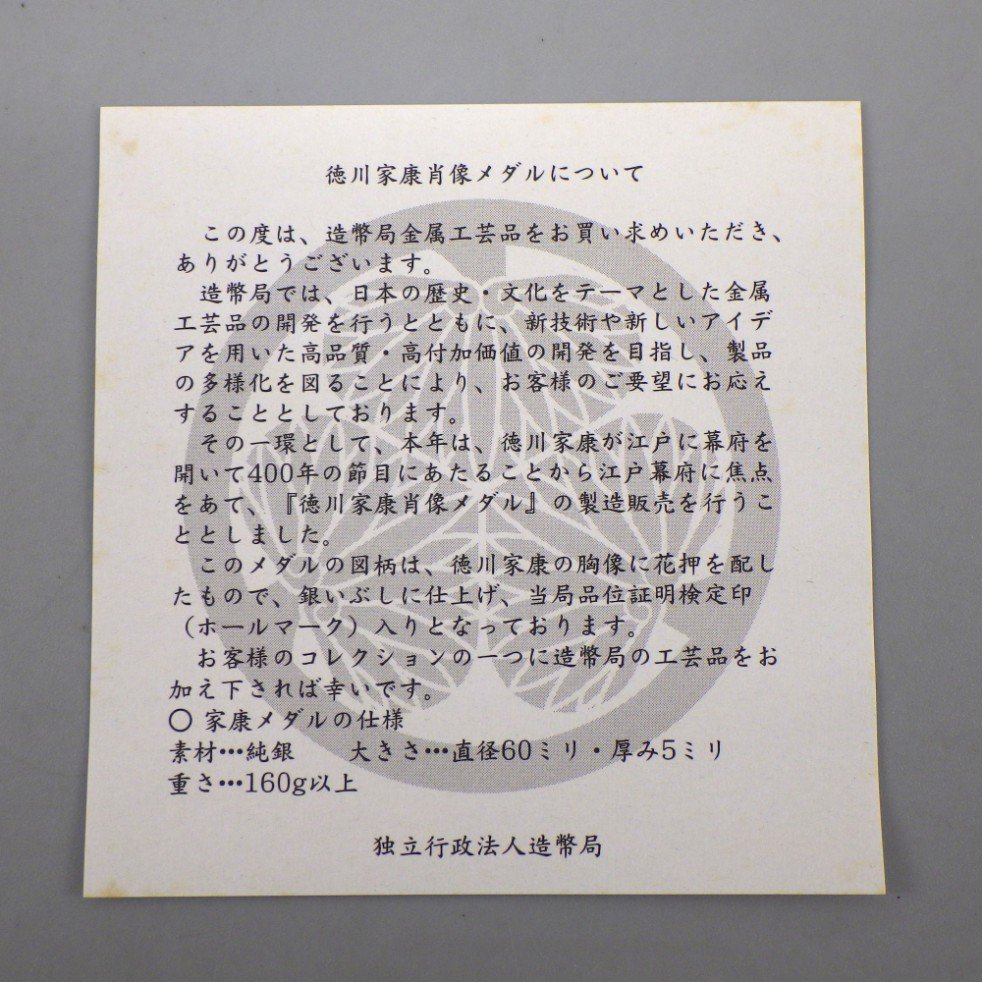 徳川家康肖像メダルについて
この度は、造幣局金属工芸品をお買い求めいただき、
ありがとうございます。
造幣局では、日本の歴史・文化をテーマとした金属
工芸品の開発を行うとともに、新技術や新しいアイデ
アを用いた高品質・高付加価値の開発を目指し、製品
の多様化を図ることにより、お客様のご要望にお応え
することとしております。
その一環として、本年は、徳川家康が江戸に幕府を
開いて400年の節目にあたることから江戸幕府に焦点
をあて、『徳川家康肖像メダル』の製造販売を行うこ
ととしました。
このメダルの図柄は、徳川家康の胸像に花押を配し
たもので、銀いぶしに仕上げ、当局品位証明検定印
（ホールマーク）入りとなっております。
お客様のコレクションの一つに造幣局の工芸品をお
加え下されば幸いです。
〇 家康メダルの仕様
素材…純銀　　大きさ…直径60ミリ・厚み5ミリ
重さ…160g以上
独立行政法人造幣局